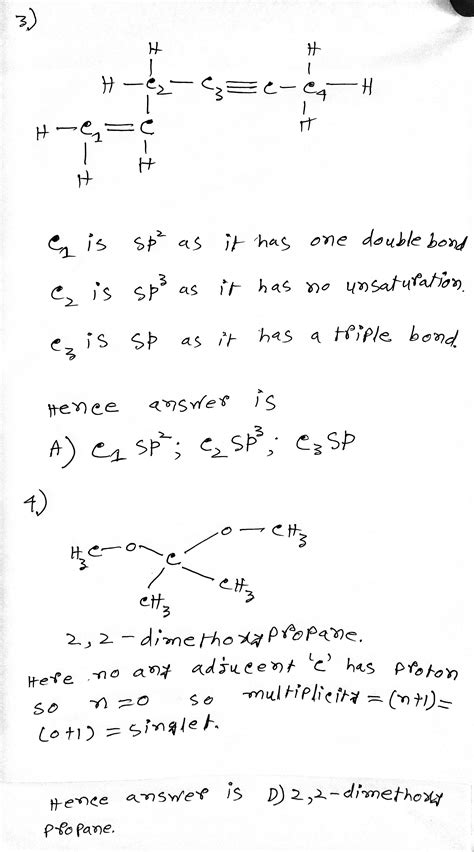 3.)
H H
H – C₂ – C₃ ≡ C – C₄ – H
H – C₁ = C H
H H
C₁ is sp² as it has one double bond
C₂ is sp³ as it has no unsaturation.
C₃ is sp as it has a triple bond.
Hence answer is
A) C₁ sp²; C₂ sp³; C₃ sp
4.)
O – CH₃
H₃C – O C
CH₃ CH₃
2,2-dimethoxy propane.
Here no any adjucent 'C' has proton
so n=0 so multiplicity = (n+1) =
(0+1) = singlet.
Hence answer is D) 2,2-dimethoxy
propane.